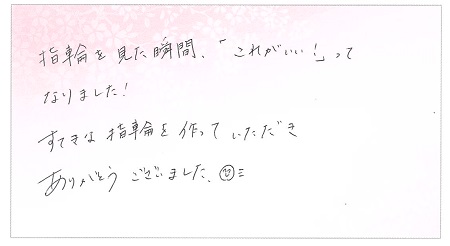 指輪を見た瞬間、「これがいい!」って
なりました!
すてきな指輪を作っていただき
ありがとうございました。